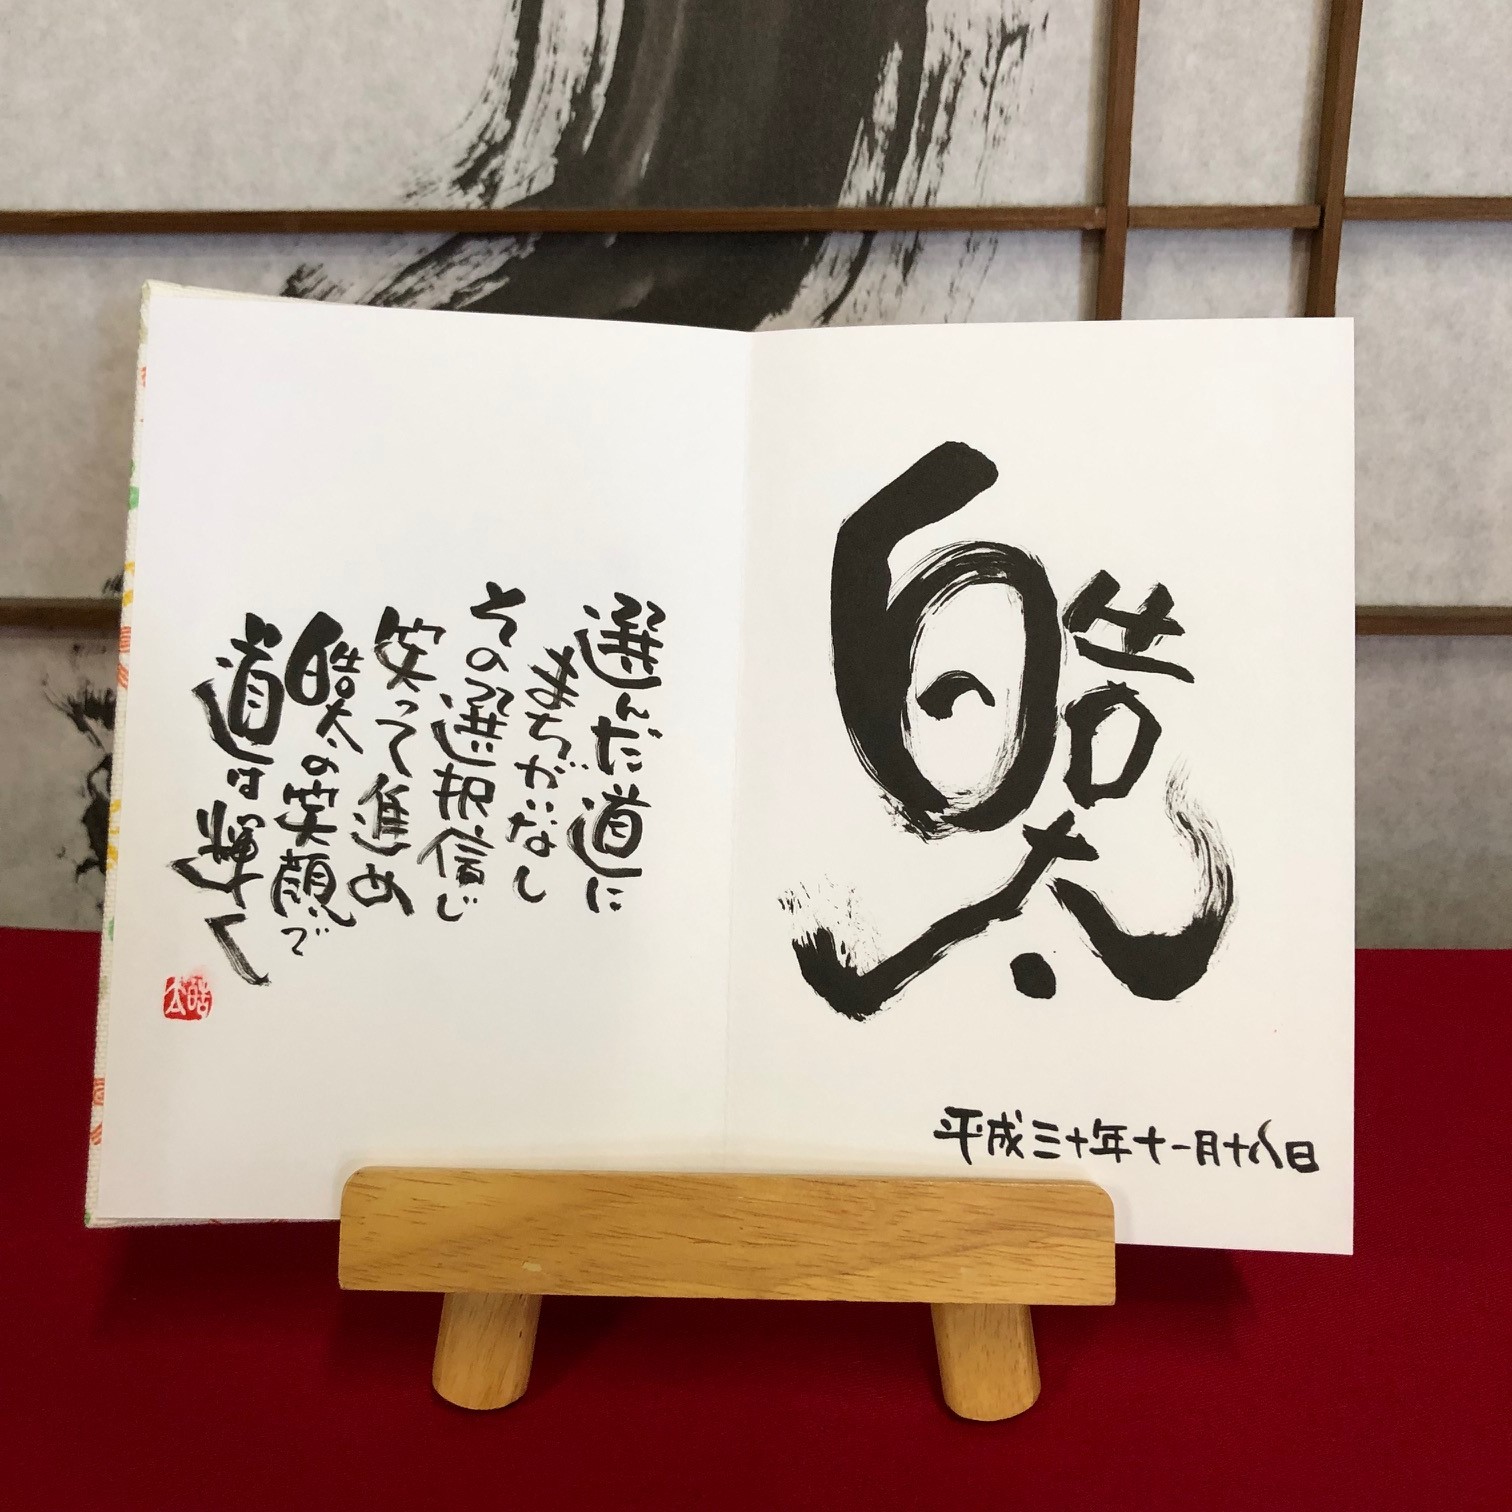 皓太
平成三十年十一月十八日
選んだ道に
まちがいなし
その選択信じ
笑って進め
皓太の笑顔で
道は輝く
皓太